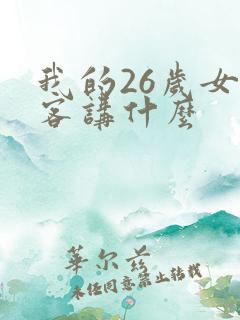 我的26歲女
客講什麼
華尔兹
未经同意禁止转载